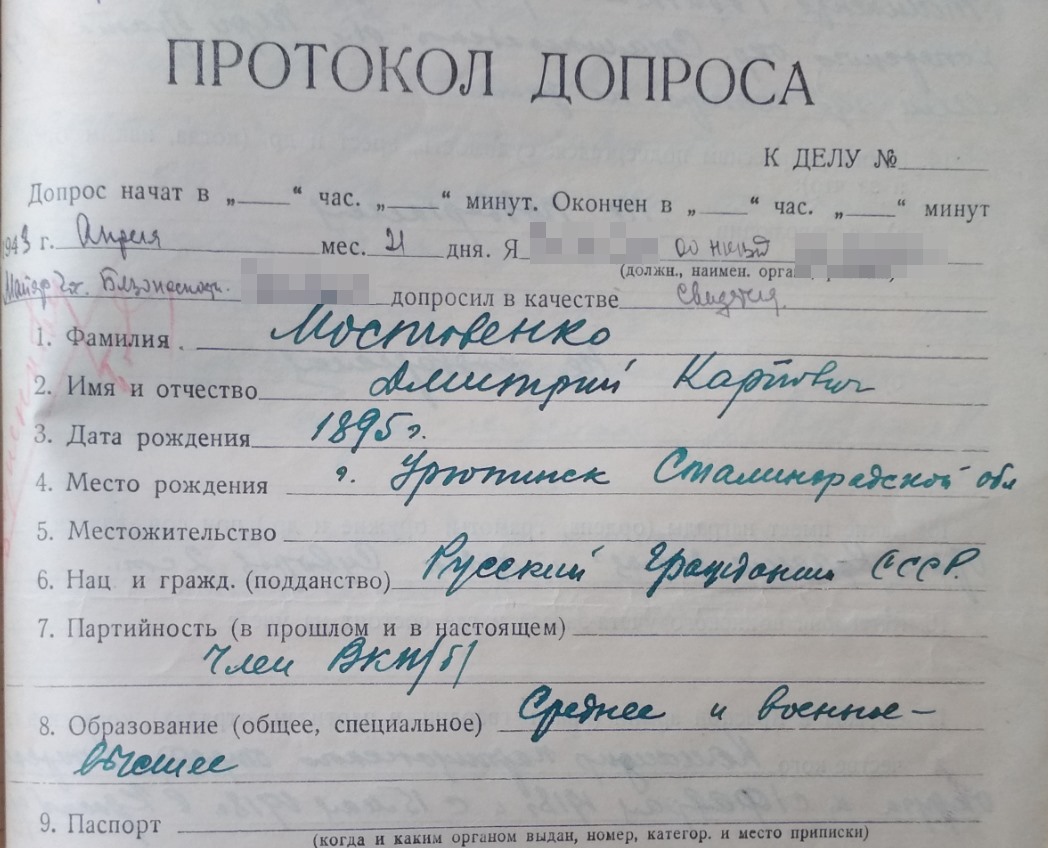 ПРОТОКОЛ ДОПРОСА
К ДЕЛУ №
Допрос начат в „ “ час. „ “ минут. Окончен в „ “ час. „ “ минут
1943 г. Апреля мес. 21 дня. Я
(должн., наимен. орга
Майор Гос. Безопасности допросил в качестве свидетеля
1. Фамилия. Мостовенко
2. Имя и отчество Дмитрий Карпович
3. Дата рождения 1895 г.
4. Место рождения г. Урюпинск Сталинградской обл
5. Местожительство
6. Нац. и гражд. (подданство) Русский Гражданин СССР.
7. Партийность (в прошлом и в настоящем)
Член ВКП/б/
8. Образование (общее, специальное) Среднее и военное-
высшее
9. Паспорт
(когда и каким органом выдан, номер, категор. и место приписки)